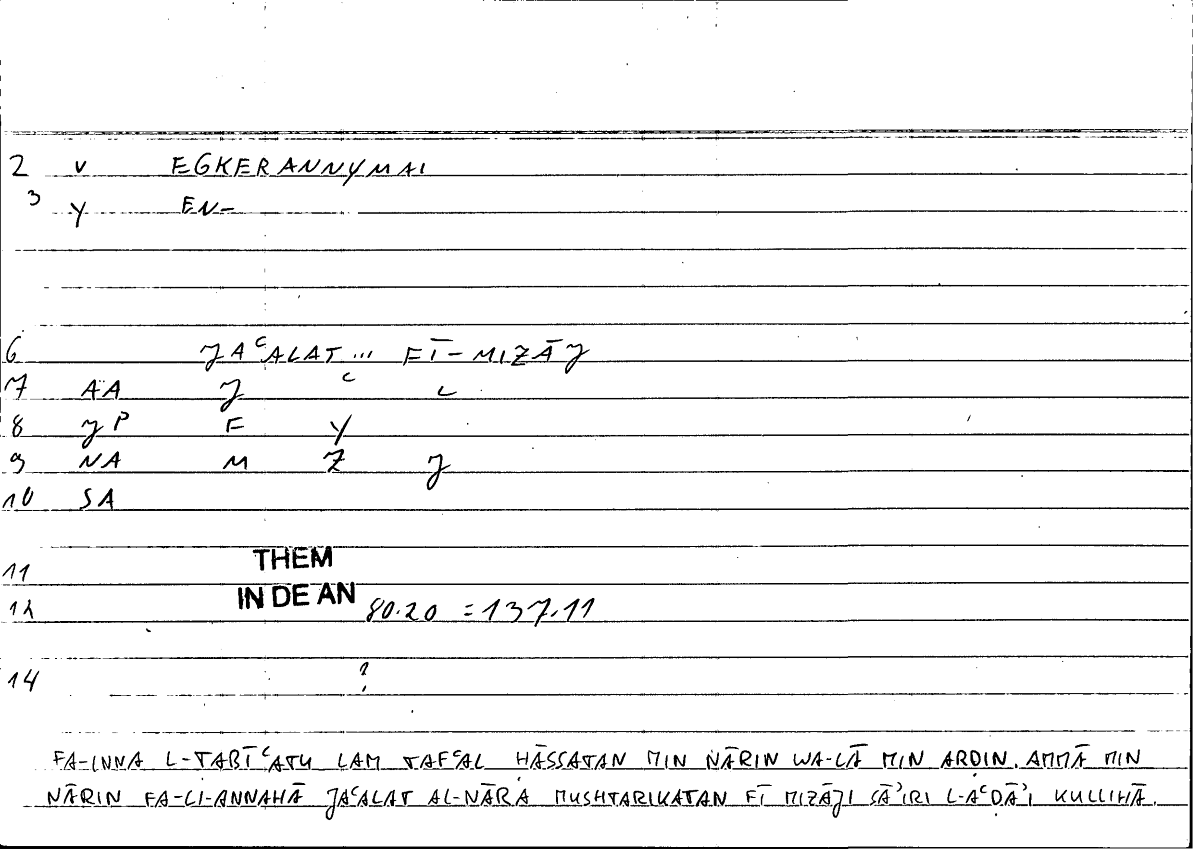 2 V EGKERANNYMAI
3 Y EN-
6 JAᶜALAT ... FĪ-MIZĀJ
7 AA J ᶜ L
8 JP F Y
9 NA M Z J
10 SA
11 THEM
12 IN DE AN 80.20 = 137.11
14 ?
FA-INNA L-TABĪᶜATU LAM TAFᶜAL HĀSSATAN MIN NĀRIN WA-LĀ MIN ARDIN. AMMĀ MIN
NĀRIN FA-LI-ANNAHĀ JAᶜALAT AL-NĀRA MUSHTARIKATAN FĪ MIZĀJI SĀʾIRI L-AᶜDĀʾI KULLIHĀ.